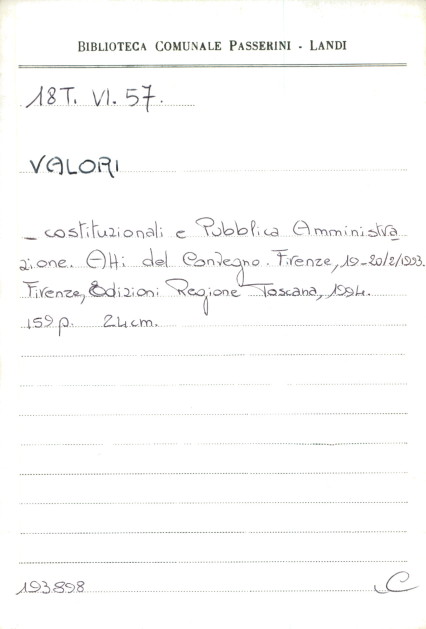 BIBLIOTECA COMUNALE PASSERINI - LANDI
18T. VI. 57.
VALORI
– costituzionali e Pubblica Amministra
zione. Atti del Convegno. Firenze, 19-20/2/1993.
Firenze, Edizioni Regione Toscana, 1994.
159 p. 24 cm.
193898 C